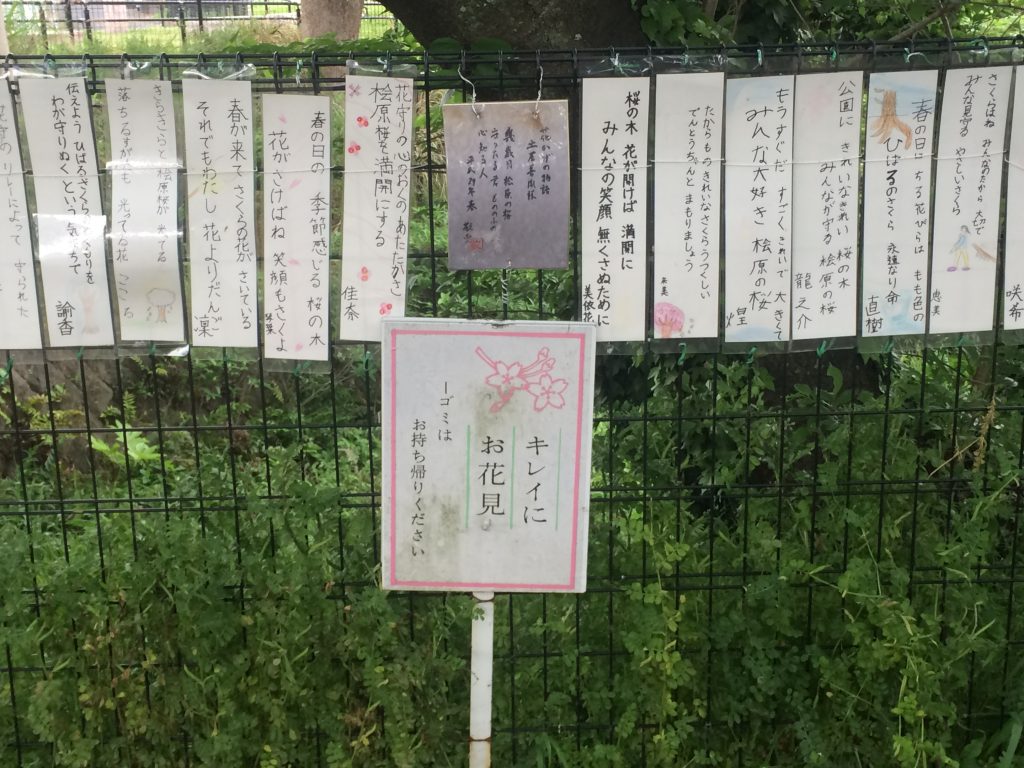 さくらはね みんなのたから 大切で
みんな見守る やさしいさくら
恵美
咲希
春の日に ちる花びらは もも色の
ひばるのさくら 永遠なり命
直樹
公園に きれいなきれい 桜の木
みんなが守る 桧原の桜
龍之介
もうすぐだ すごくこれいで 大きくて
みんな大好き 桧原の桜
煌
たからもの きれいなさくら うつくしい
でんとうちゃんと まもりましょう
桜の木 花が開けば 満開に
みんなの笑顔 無くさぬために
美依花
花かげ物語
土居善胤様
桧原の桜
心知る人
平成29年春
花守りの 心のおくの あたたかさ
桧原桜を 満開にする
佳奈
春の日の 季節感じる 桜の木
花がさけばね 笑顔もさくよ
春が来て さくらの花が さいている
それでもわたし 花よりだんご
凜
きらきらと 桧原桜が 光てる
落ちるすがたも 光ってる花
伝えよう ひばるざくら
わが守りぬく という気もちで
諭香
リレーによって 守られた
キレイに
お花見
ーゴミは
お持ち帰りください